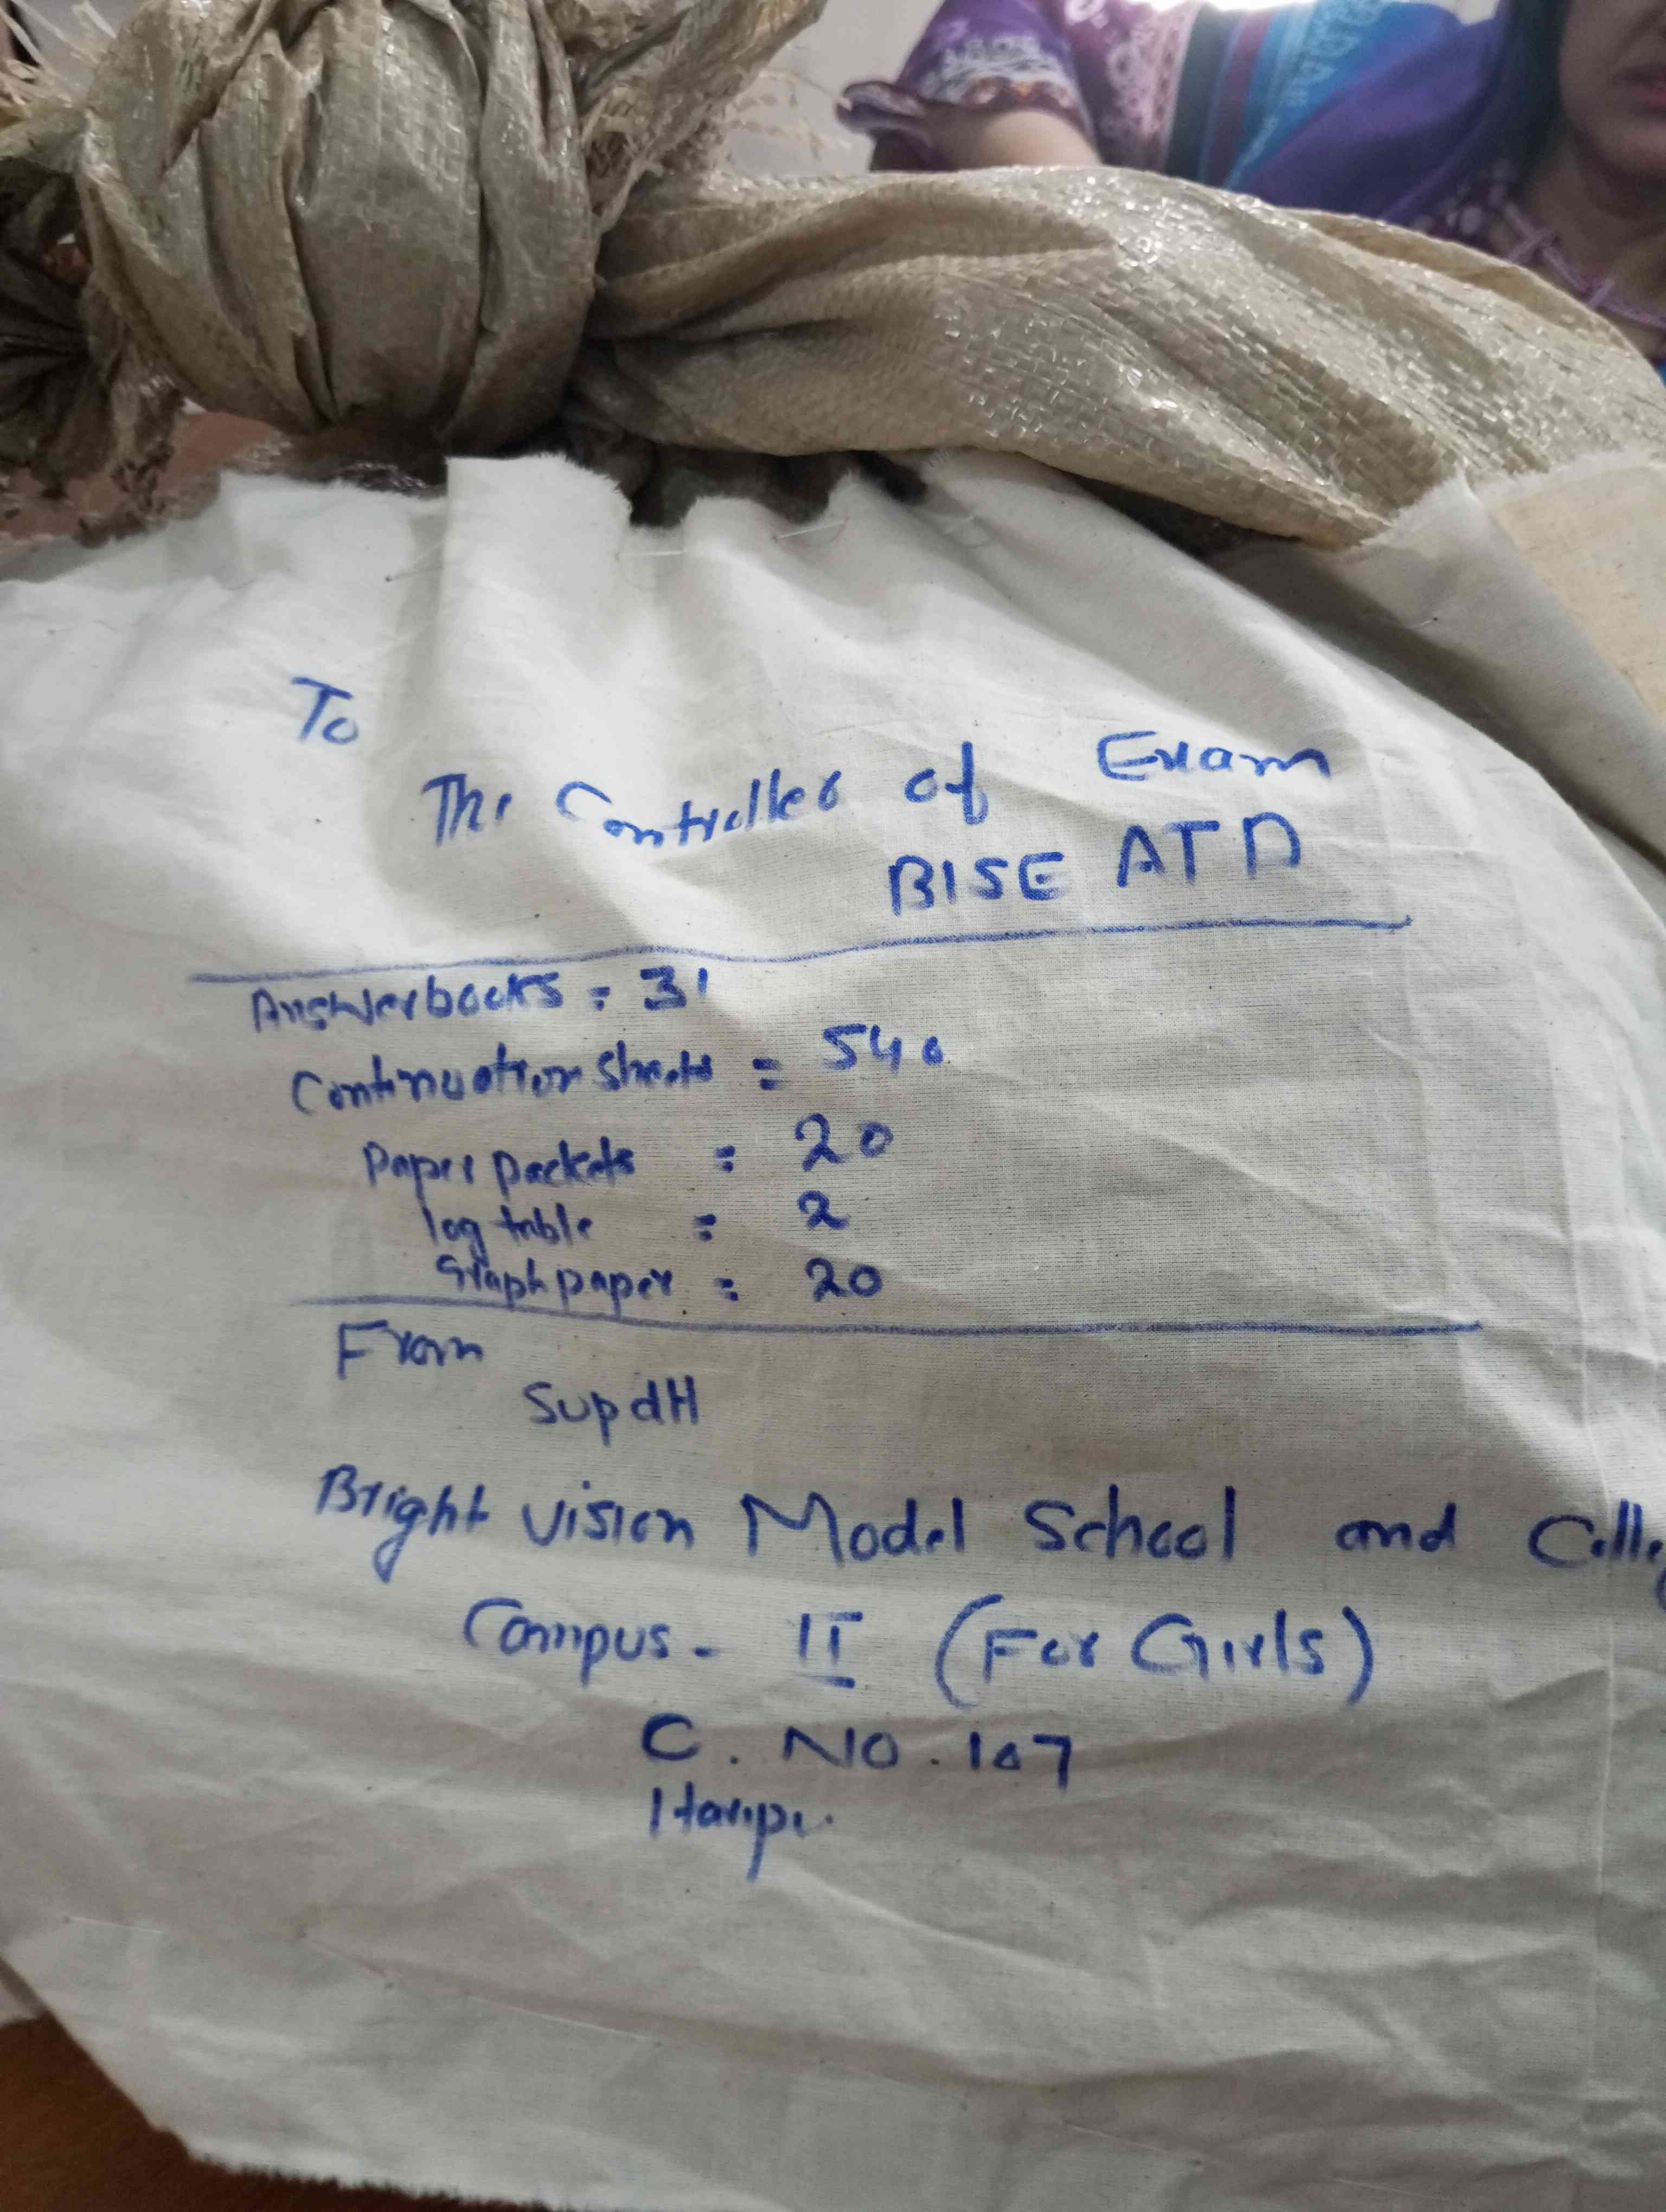 To
The Controller of Exam
BISE ATD
Answerbooks = 31
Continuation Sheets = 540
Paper packets = 20
log table = 2
Graph paper = 20
From
Supdtt
Bright vision Model School and Colleg
Campus - II (For Girls)
C. NO. 107
Haripur